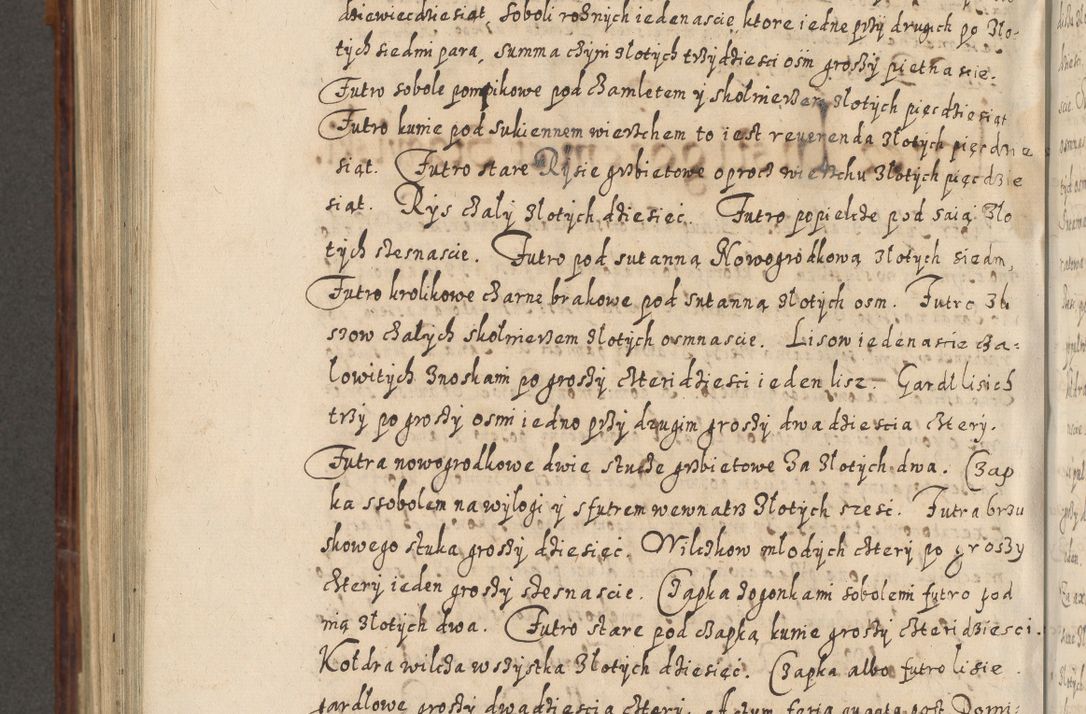 dziewiecdziesiąt, soboli rożnych iedenascie, ktore iedne przy drugich po zło-
tych siedmi para, summa czyni złotych trzydziesci osm groszy pietnascie.
Futro sobole pompikowe pod czamletem y skołnierzem złotych pięcdziesiąt
Futro kunie pod sukiennem wierzchem to iest reuerenda złotych pięcdzie
siąt. Futro stare Rysie grzbietowe oprocz wierzchu złotych pięcdzie
siąt. Rys czały złotych dziesięć. Futro popielcze pod saią zło
tych szesnascie. Futro pod sutanną Nowogrodkową złotych siedm,
Futro krolikowe czarne brakowe pod sutanną złotych osm. Futro zbi
szow czałych skołnierzem złotych osmnascie. Lisow iedenascie cza-
łowitych znoskami po groszy czteridziesci ieden lisz. Gardł lisich
trzy po groszy osmi iedno przy drugim groszy dwadziescia cztery.
Futra nowogrodkowe dwie stucze grzbietowe za złotych dwa. Czap
ka ssobolem na wylogi y sfutrem wewnatrz złotych szesc. Futra brzu
skowego stuka groszy dziesięć. Wilczkow młodych cztery po groszy
cztery ieden groszy szesnascie. Czapka zogonkami sobolemi futro pod
nią złotych dwa. Futro stare pod czapką kunie groszy czteridziesci.
Kołdra wilcza wszystka złotych dziesięć. Czapka albo futro lisie
gardlowe groszy dwadziescia cztery. Actum feria quarta post Domi-